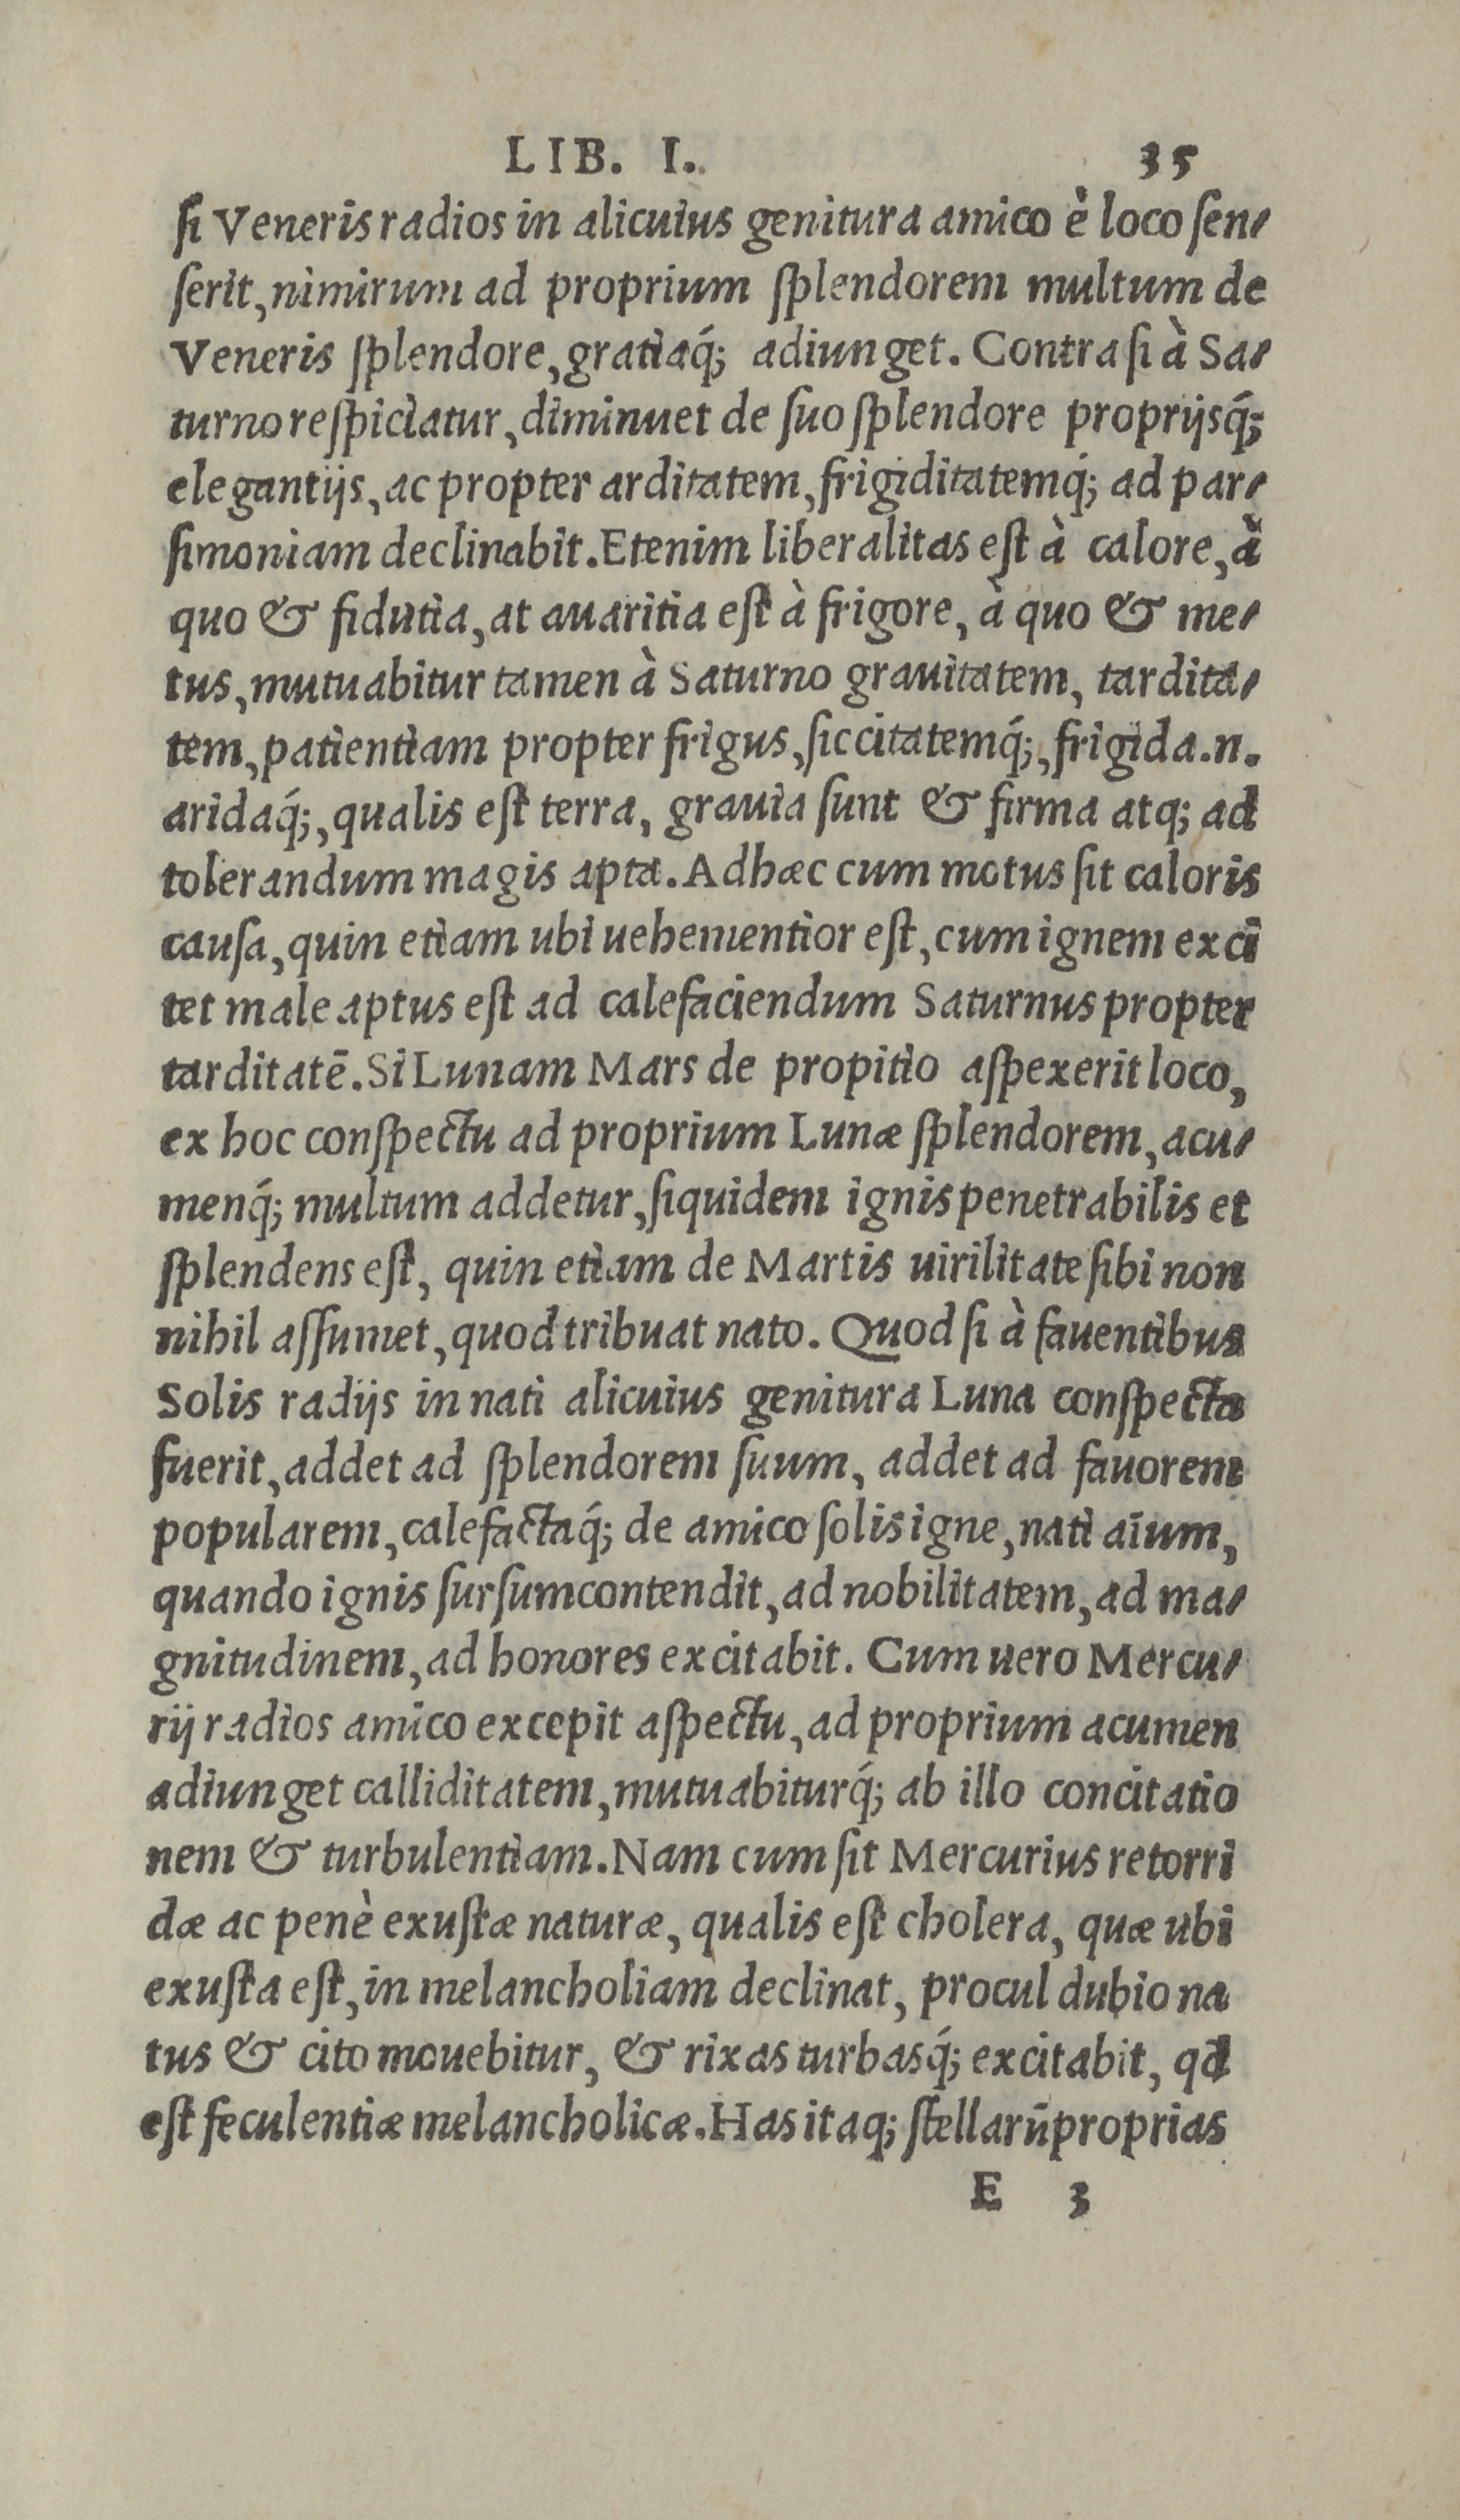 LIB. I. 35
ſi Veneris radios in alicuius genitura amico è loco ſen-
ſerit, nimirum ad proprium ſplendorem multum de
Veneris ſplendore, gratiaq́; adiunget. Contra ſi à Sa-
turno reſpiciatur, diminuet de ſuo ſplendore proprijsq́;
elegantijs, ac propter arditatem, frigiditatemq́; ad par-
ſimoniam declinabit. Etenim liberalitas eſt à calore, à
quo & fidutia, at auaritia eſt à frigore, à quo & me-
tus, mutuabitur tamen à Saturno grauitatem, tardita-
tem, patientiam propter frigus, ſiccitatemq́;, frigida.n.
aridaq́;, qualis eſt terra, grauia ſunt & firma atq; ad
tolerandum magis apta. Adhæc cum motus ſit caloris
cauſa, quin etiam ubi uehementior eſt, cum ignem exci
tet male aptus eſt ad calefaciendum Saturnus propter
tarditatē. Si Lunam Mars de propitio aſpexerit loco,
ex hoc conſpectu ad proprium Lunæ ſplendorem, acu-
menq́; multum addetur, ſiquidem ignis penetrabilis et
ſplendens eſt, quin etiam de Martis uirilitate ſibi non
nihil aſſumet, quod tribuat nato. Quod ſi à fauentibus
Solis radijs in nati alicuius genitura Luna conſpecta
fuerit, addet ad ſplendorem ſuum, addet ad fauorem
popularem, calefactaq́; de amico ſolis igne, nati aīum,
quando ignis ſurſum contendit, ad nobilitatem, ad ma-
gnitudinem, ad honores excitabit. Cum uero Mercu-
rij radios amico excepit aſpectu, ad proprium acumen
adiunget calliditatem, mutuabiturq́; ab illo concitatio
nem & turbulentiam. Nam cum ſit Mercurius retorri
dæ ac penè exuſtæ naturæ, qualis eſt cholera, quæ ubi
exuſta eſt, in melancholiam declinat, procul dubio na
tus & cito mouebitur, & rixas turbasq́; excitabit, qd
eſt feculentiæ melancholicæ. Has itaq; ſtellarū proprias
E 3